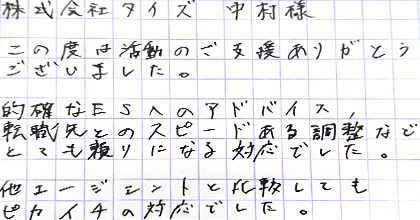 株式会社タイズ 中村様
この度は活動のご支援ありがとう
ございました。
的確なESへのアドバイス,
転職先とのスピードある調整など
とても頼りになる対応でした。
他エージェントと比較しても
ピカイチの対応でした。